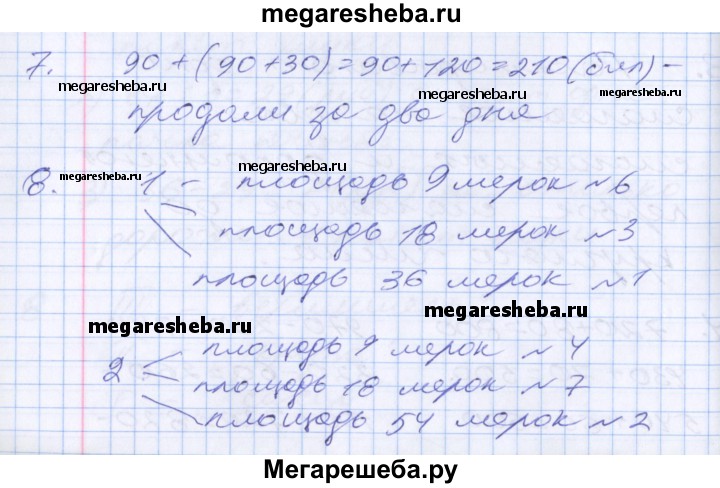 megaresheba.ru
7. 90 + (90+30) = 90+120 = 210 (бил) -
megaresheba.ru megaresheba.ru megaresheba.ru
продали за два дня
megaresheba.ru
8. megaresheba.ru 1 - площадь 9 мерок №6
площадь 18 мерок №3
площадь 36 мерок №1
megaresheba.ru megaresheba.ru
площадь 9 мерок №4
2 площадь 18 мерок №7
площадь 54 мерок №2
Мегарешеба.ру